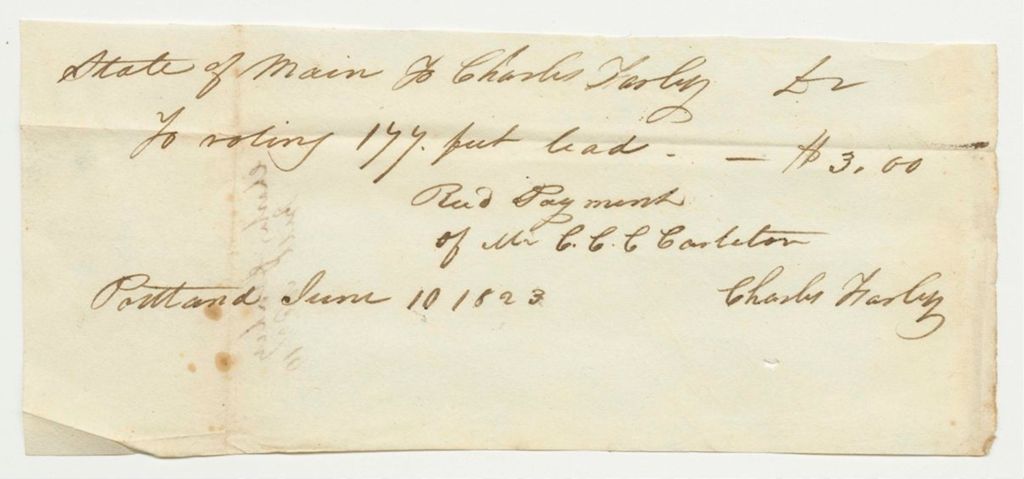 State of Main To Charles Farley Dr
To roling 177. feet lead - — $ 3.00
Rec'd Payment
of Mr C. C. C Carleton
Portland June 10 1823 Charles Farley